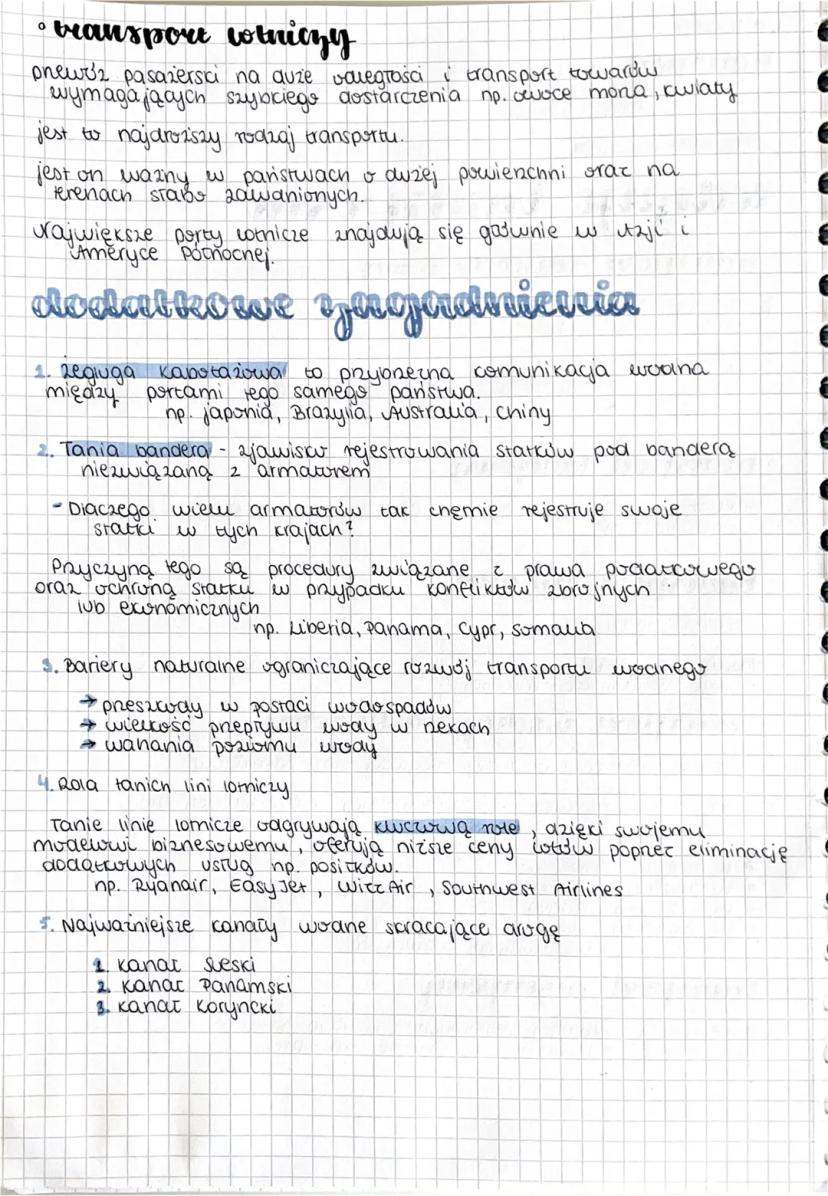 transport lotniczy
przewóz pasażerski na duże odległości i transport towarów
wymagających szybkiego dostarczenia np. owoce morza, kwiaty
jest to najdroższy rodzaj transportu.
jest on ważny w państwach o dużej powierzchni oraz na
terenach słabo zawanionych.
Największe porty lotnicze znajdują się głównie w Azji i
Ameryce Północnej.
dodatkowe zagadnienia
1. żegluga kabotażowa to przybrzeżna komunikacja wodna
między portami tego samego państwa.
np. japonia, Brazylia, Australia, Chiny
2. Tania bandera - zjawisko rejestrowania statków pod banderą
niezwiązaną z armatorem
- Dlaczego wielu armatorów tak chętnie rejestruje swoje
statki w tych krajach?
Przyczyną tego są procedury związane z prawa podatkowego
oraz ochroną statku w przypadku konfliktów zbrojnych
lub ekonomicznych
np. Liberia, Panama, Cypr, Somalia
3. Bariery naturalne ograniczające rozwój transportu wodnego
→ przeszkody w postaci wodospadów
→ wielkość przepływu wody w rzekach
→ wahania poziomu wody
4. Rola tanich lini lotniczy
Tanie linie lotnicze odgrywają kluczową role, dzięki swojemu
modelowi biznesowemu, oferują niższe ceny lotów poprzez eliminację
dodatkowych usług np. posiłków.
np. Ryanair, EasyJet, WizzAir, Southwest Airlines
5. Najważniejsze kanały wodne skracające drogę
1. kanał Sueski
2. kanał Panamski
3. kanał Koryncki